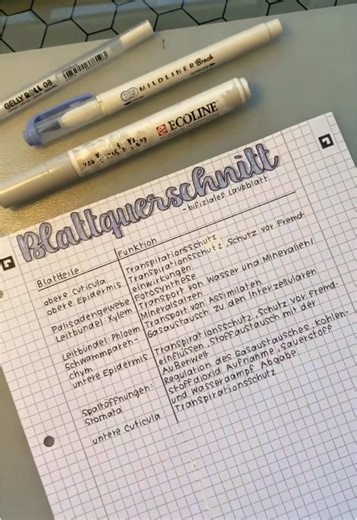 GELLY ROLL 08
MILDLINER Brush
ECOLINE
Blattquerschnitt
- bifaziales Laubblatt
Blattteile Funktion
obere Cuticula Transpirationsschutz
obere Epidermis Transpirationsschutz, Schutz vor Fremd-
einwirkungen
Palisadengewebe Fotosynthese
Leitbündel: Xylem Transport von Wasser und Mineralien/
Mineralsalzen
Leitbündel: Phloem Transport von Assimilaten
Schwammparen- Gasaustausch zu den Interzellularen
chym
untere Epidermis Transpirationsschutz, Schutz vor Fremd-
einflüssen, Stoffaustausch mit der
Außenwelt
Spaltöffnungen: Regulation des Gasaustausches, Kohlen-
Stomata stoffdioxid Aufnahme, Sauerstoff
und Wasserdampf Abgabe
untere Cuticula Transpirationsschutz